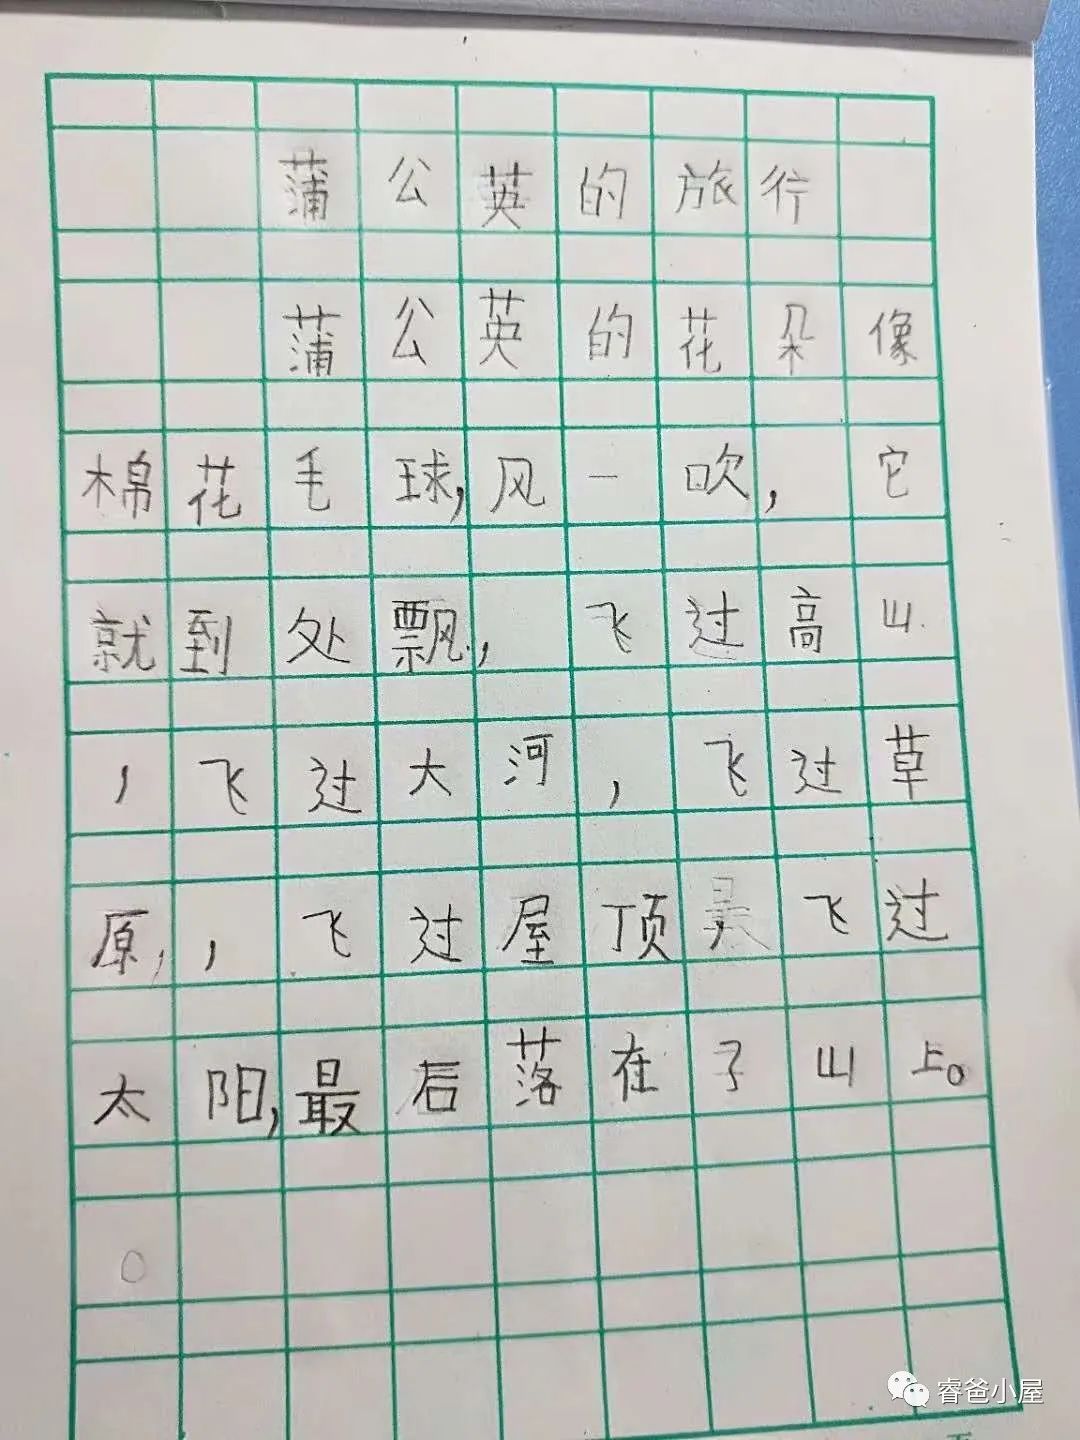 蒲公英的旅行
蒲公英的花朵像
棉花毛球,风一吹,它
就到处飘,飞过高山
,飞过大河,飞过草
原,,飞过屋顶,飞过
太阳,最后落在子山上。
。
睿爸小屋